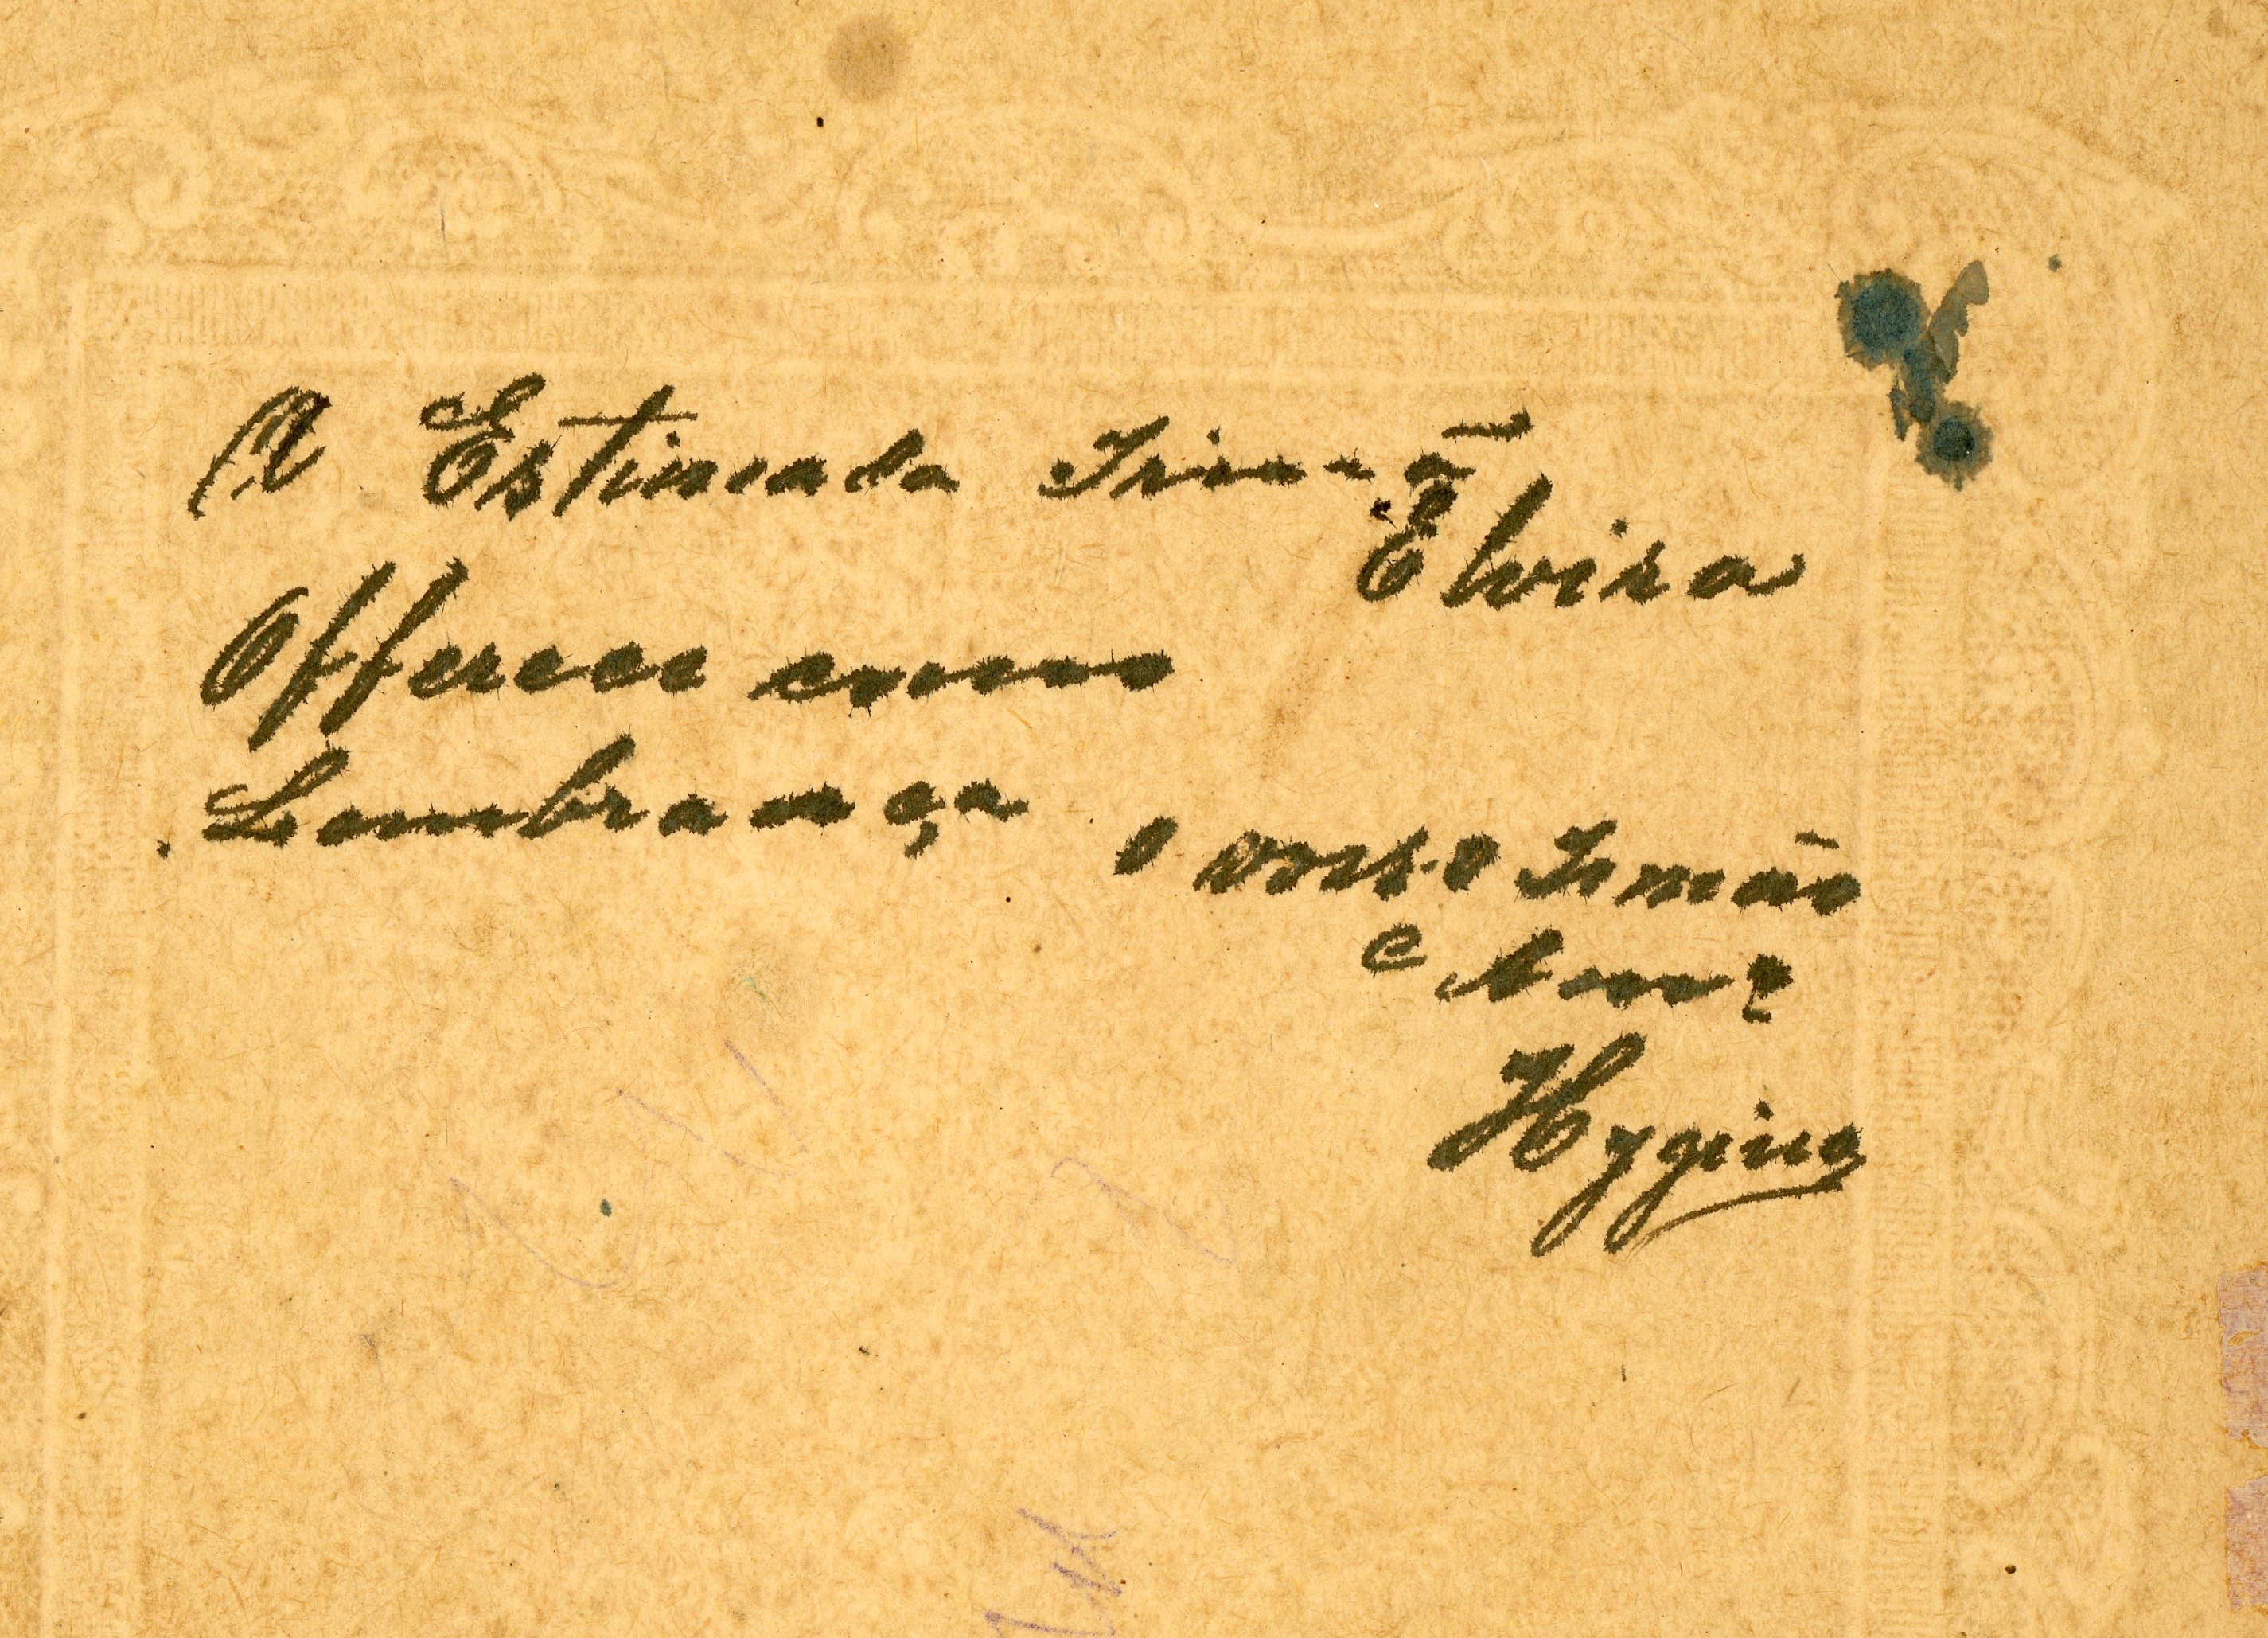 A Estimada Irmã
Elvira
Offerece como
Lembrança
o vosso Irmão
e Amº
Hygino